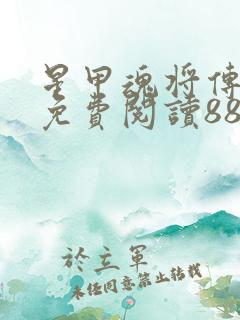 星甲魂将傳
免費閱讀88
於立軍
未经同意禁止转载